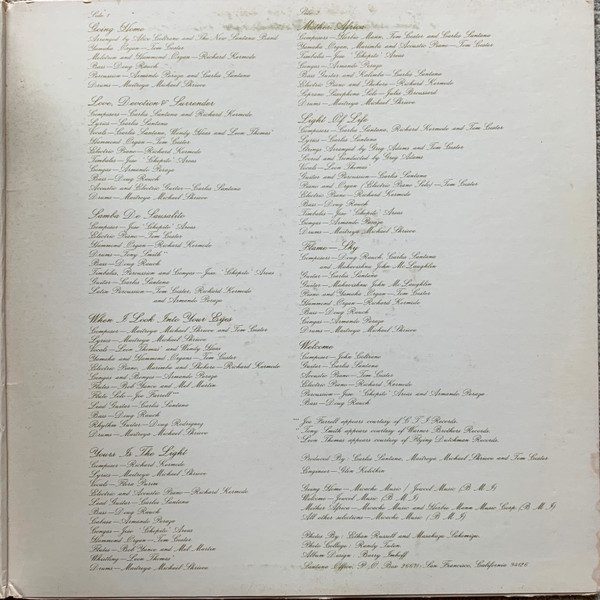 Side 1
Going Home
Arranged by Alice Coltrane and The New Santana Band
Yamaha Organ—Tom Coster
Mellotron and Hammond Organ—Richard Kermode
Bass—Doug Rauch
Percussion—Armando Peraza and Carlos Santana
Drums—Maitreya Michael Shrieve
Love, Devotion & Surrender
Composers—Carlos Santana and Richard Kermode
Lyrics—Carlos Santana
Vocals—Carlos Santana, Wendy Haas and Leon Thomas
Hammond Organ—Tom Coster
Electric Piano—Richard Kermode
Timbales—Jose "Chepito" Areas
Congas—Armando Peraza
Bass—Doug Rauch
Acoustic and Electric Guitar—Carlos Santana
Drums—Maitreya Michael Shrieve
Samba De Sausalito
Composer—Jose "Chepito" Areas
Electric Piano—Tom Coster
Hammond Organ—Richard Kermode
Drums—Tony Smith**
Bass—Doug Rauch
Timbales, Percussion and Congas—Jose "Chepito" Areas
Guitar—Carlos Santana
Latin Percussion—Tom Coster, Richard Kermode
and Armando Peraza
When I Look Into Your Eyes
Composers—Maitreya Michael Shrieve and Tom Coster
Lyrics—Maitreya Michael Shrieve
Vocals—Leon Thomas and Wendy Haas
Yamaha and Hammond Organs—Tom Coster
Electric Piano, Marimba and Shekere—Richard Kermode
Congas and Bongos—Armando Peraza
Flutes—Bob Yance and Mel Martin
Flute Solo—Joe Farrell
Lead Guitar—Carlos Santana
Bass—Doug Rauch
Rhythm Guitar—Doug Rodriguez
Drums—Maitreya Michael Shrieve
Yours Is The Light
Composer—Richard Kermode
Lyrics—Maitreya Michael Shrieve
Vocals—Flora Purim
Electric and Acoustic Piano—Richard Kermode
Lead Guitar—Carlos Santana
Bass—Doug Rauch
Cabasa—Armando Peraza
Congas—Jose "Chepito" Areas
Hammond Organ—Tom Coster
Flutes—Bob Yance and Mel Martin
Whistling—Leon Thomas
Drums—Maitreya Michael Shrieve
Side 2
Mother Africa
Composers—Herbie Mann, Tom Coster and Carlos Santana
Yamaha Organ, Marimba and Acoustic Piano—Tom Coster
Timbales—Jose "Chepito" Areas
Congas—Armando Peraza
Bass Guitar and Kalimba—Carlos Santana
Electric Piano and Shekere—Richard Kermode
Soprano Saxophone Solo—Jules Broussard
Drums—Maitreya Michael Shrieve
Light Of Life
Composers—Carlos Santana, Richard Kermode and Tom Coster
Lyrics—Carlos Santana
Strings Arranged by Greg Adams and Tom Coster
Scored and Conducted by Greg Adams
Vocals—Leon Thomas
Guitar and Percussion—Carlos Santana
Piano and Organ (Electric Piano Solo)—Tom Coster
Electric Piano—Richard Kermode
Bass—Doug Rauch
Timbales—Jose "Chepito" Areas
Congas—Armando Peraza
Drums—Maitreya Michael Shrieve
Flame—Sky
Composers—Doug Rauch, Carlos Santana
and Mahavishnu John McLaughlin
Guitar—Carlos Santana
Guitar—Mahavishnu John McLaughlin
Piano and Yamaha Organ—Tom Coster
Hammond Organ—Richard Kermode
Bass—Doug Rauch
Congas—Armando Peraza
Drums—Maitreya Michael Shrieve
Welcome
Composer—John Coltrane
Guitar—Carlos Santana
Acoustic Piano—Tom Coster
Electric Piano—Richard Kermode
Percussion—Jose "Chepito" Areas and Armando Peraza
Bass—Doug Rauch
Joe Farrell appears courtesy of C T I Records.
Tony Smith appears courtesy of Warner Brothers Records.
Leon Thomas appears courtesy of Flying Dutchman Records.
Produced By Carlos Santana, Maitreya Michael Shrieve and Tom Coster
Engineer—Glen Kolotkin
Going Home—Jowcol Music (B.M.I)
Welcome—Jowcol Music (B.M.I)
Mother Africa—and Herbie Mann Music Corp. (B.M.I)
All other selections—Music (B.M.I)
Photos By: Ethan Russell and
Photo Collage: Randy Tuten
Album Design: Barry Imhoff
Santana Office, P.O. Box San Francisco, California